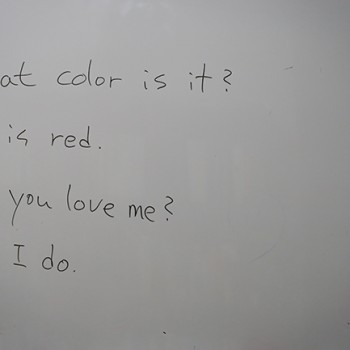 at color is it?
is red.
you love me?
I do.